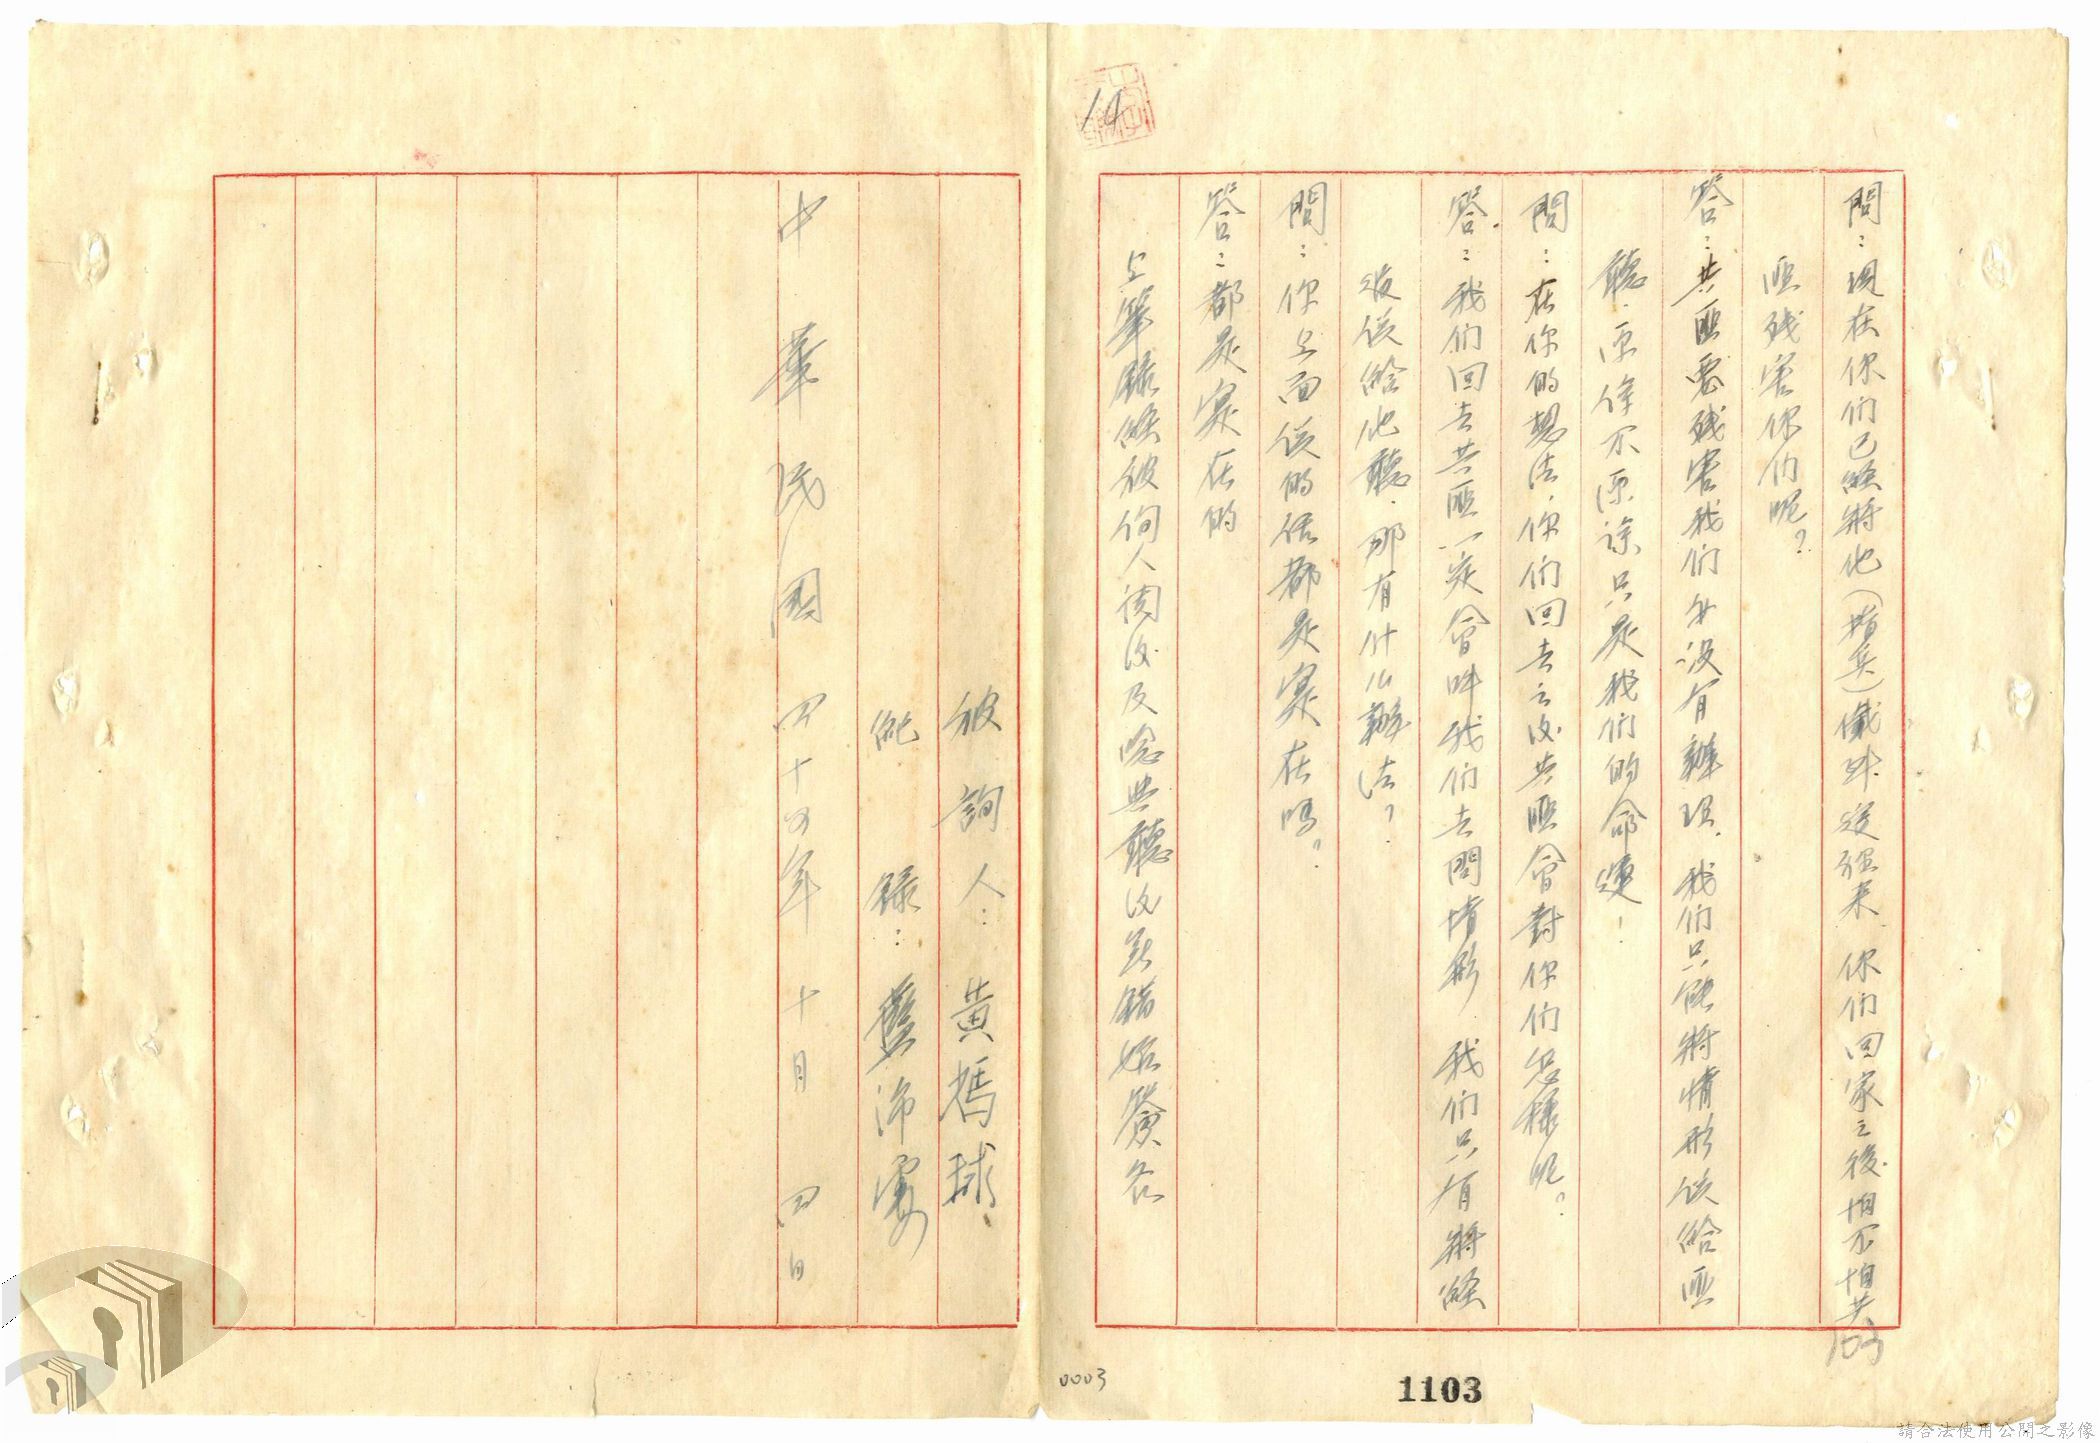 14
問：現在你們已經將他（指兵）俄艸送強来 你們回家之後怕不怕共
匪残害你们呢？
答：共匪要残害我们也没有辦理．我们只能將情形说給匪
聽．原諒不原諒只是我们的命運！
問：在你的想法．你们回去之後共匪會對你们怎樣呢？
答：我们回去共匪一定會叫我们去問情形 我们只有將經
过说給他聽．那有什么辦法？
問：你上面说的話都是實在嗎？
答：都是實在的
上筆錄經被询人閱後及唸與聽後無錯始簽名
被詢人：黃 球
紀 錄：藍
中華民國四十四年十月四日
103
0003
1103
請合法使用公開之影像